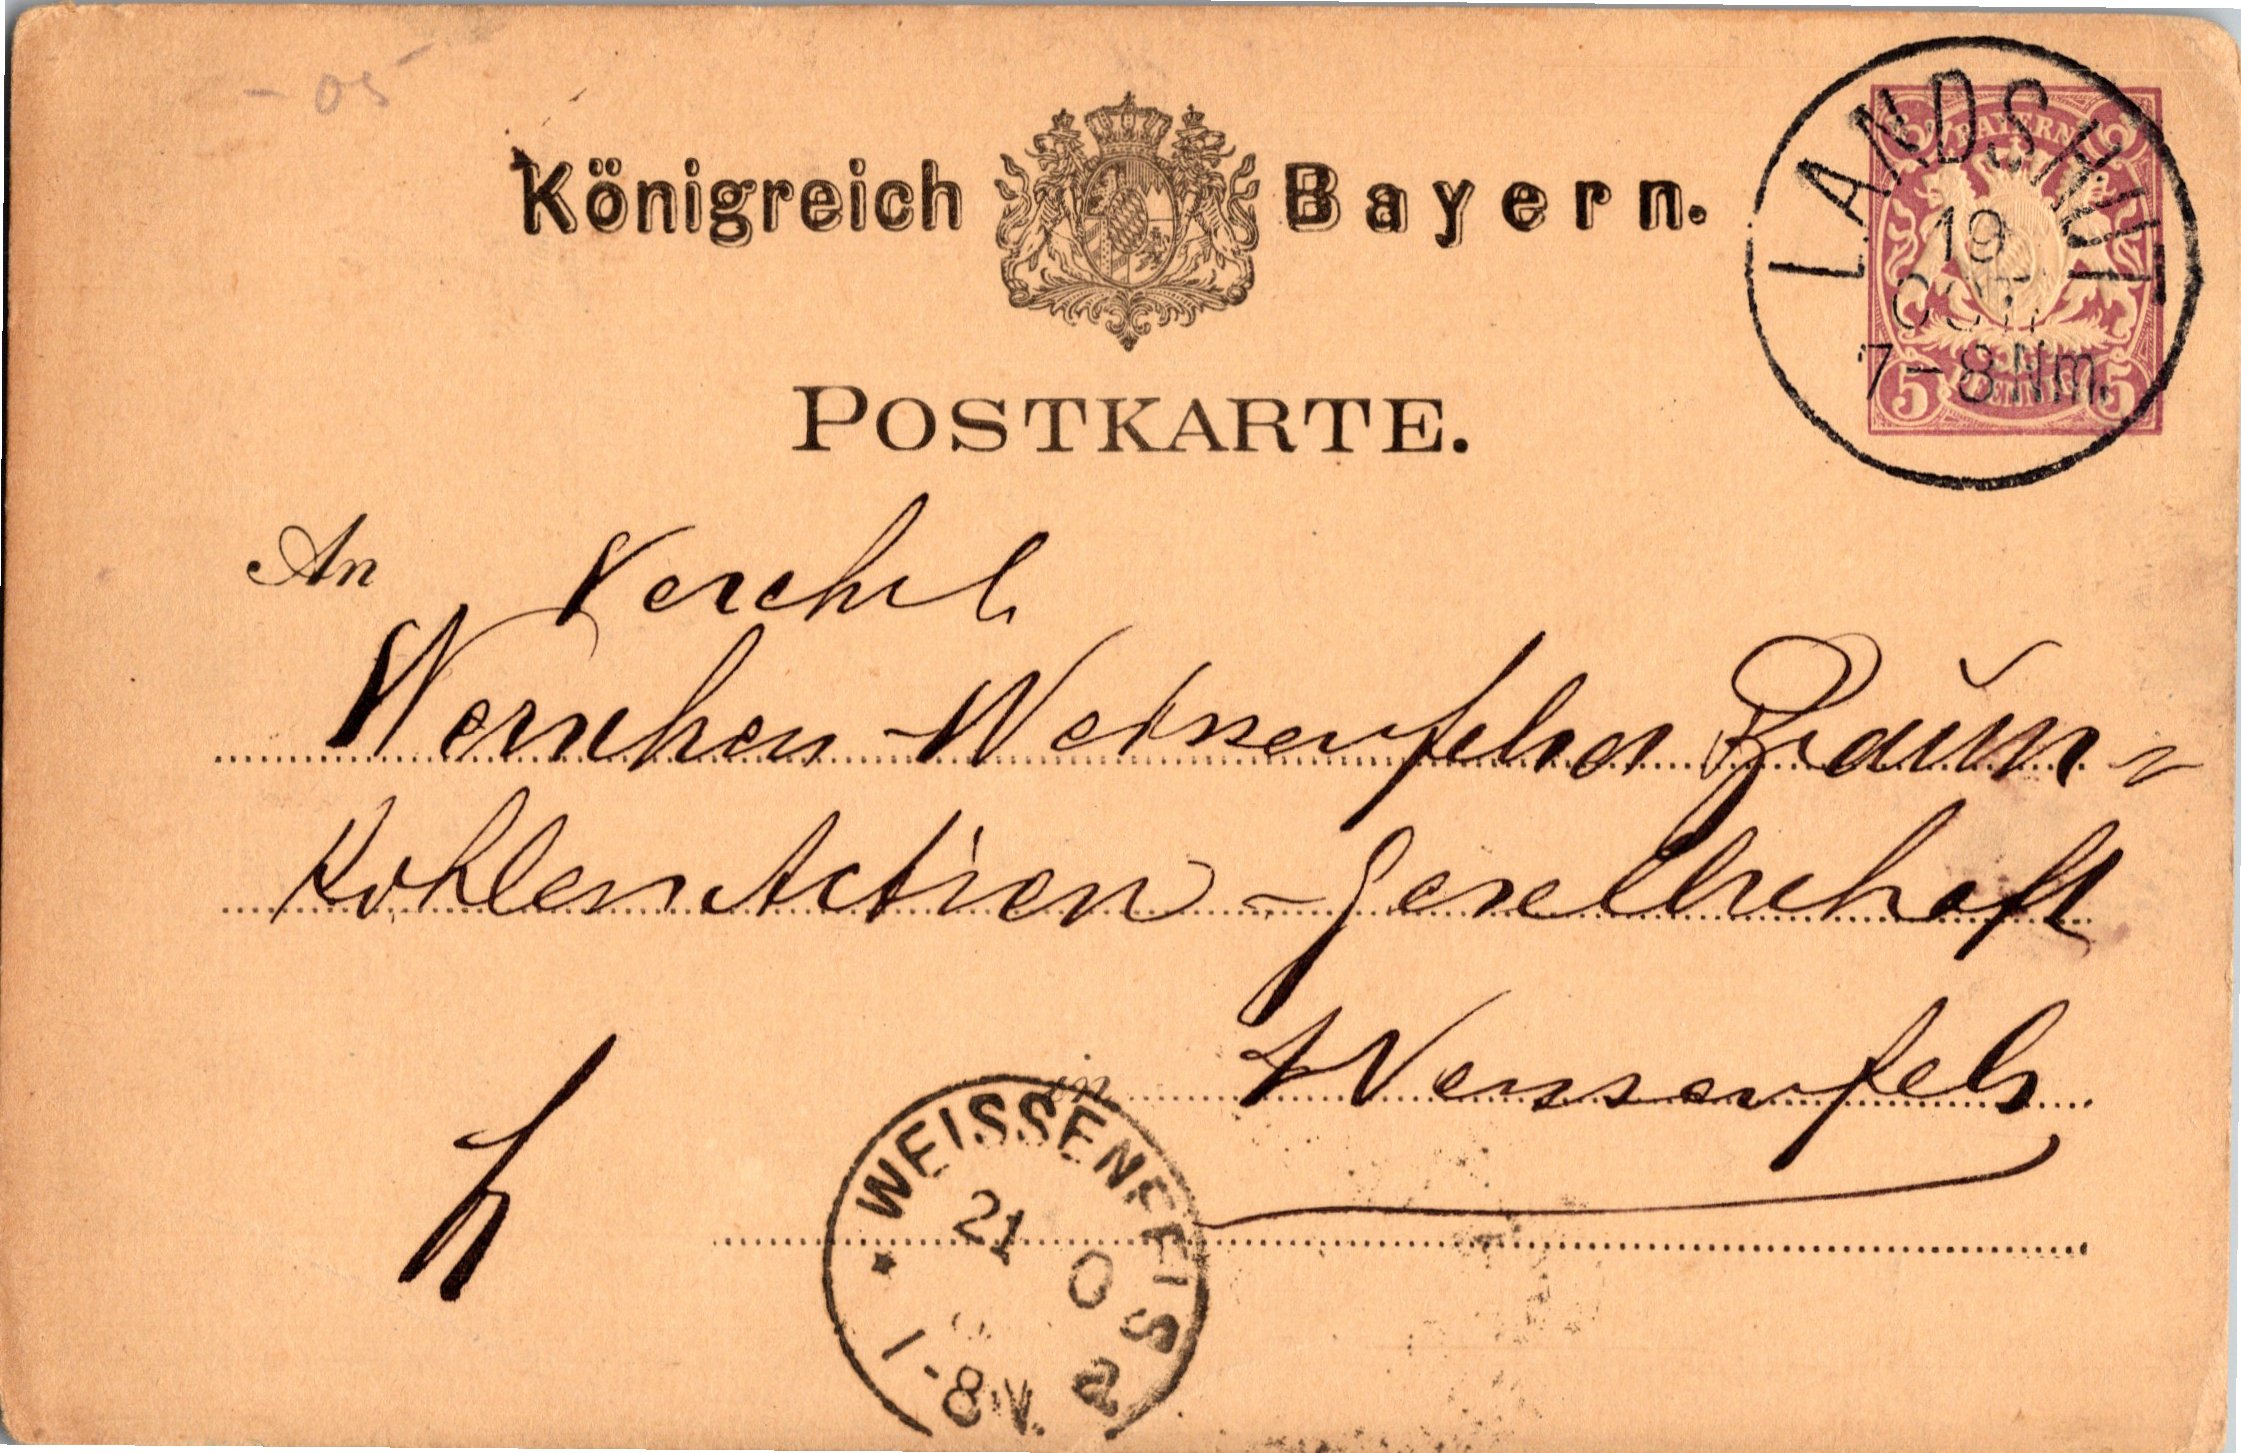 - 05
Königreich Bayern.
BAYERN
LANDSHUT
19
OCT.
7-8 Nm.
5 PFENNIG 5
POSTKARTE.
An Verehrl.
Werschen-Weissenfelser Braun-
Kohlen Actien-Gesellschaft
in Weissenfels
WEISSENFELS
21